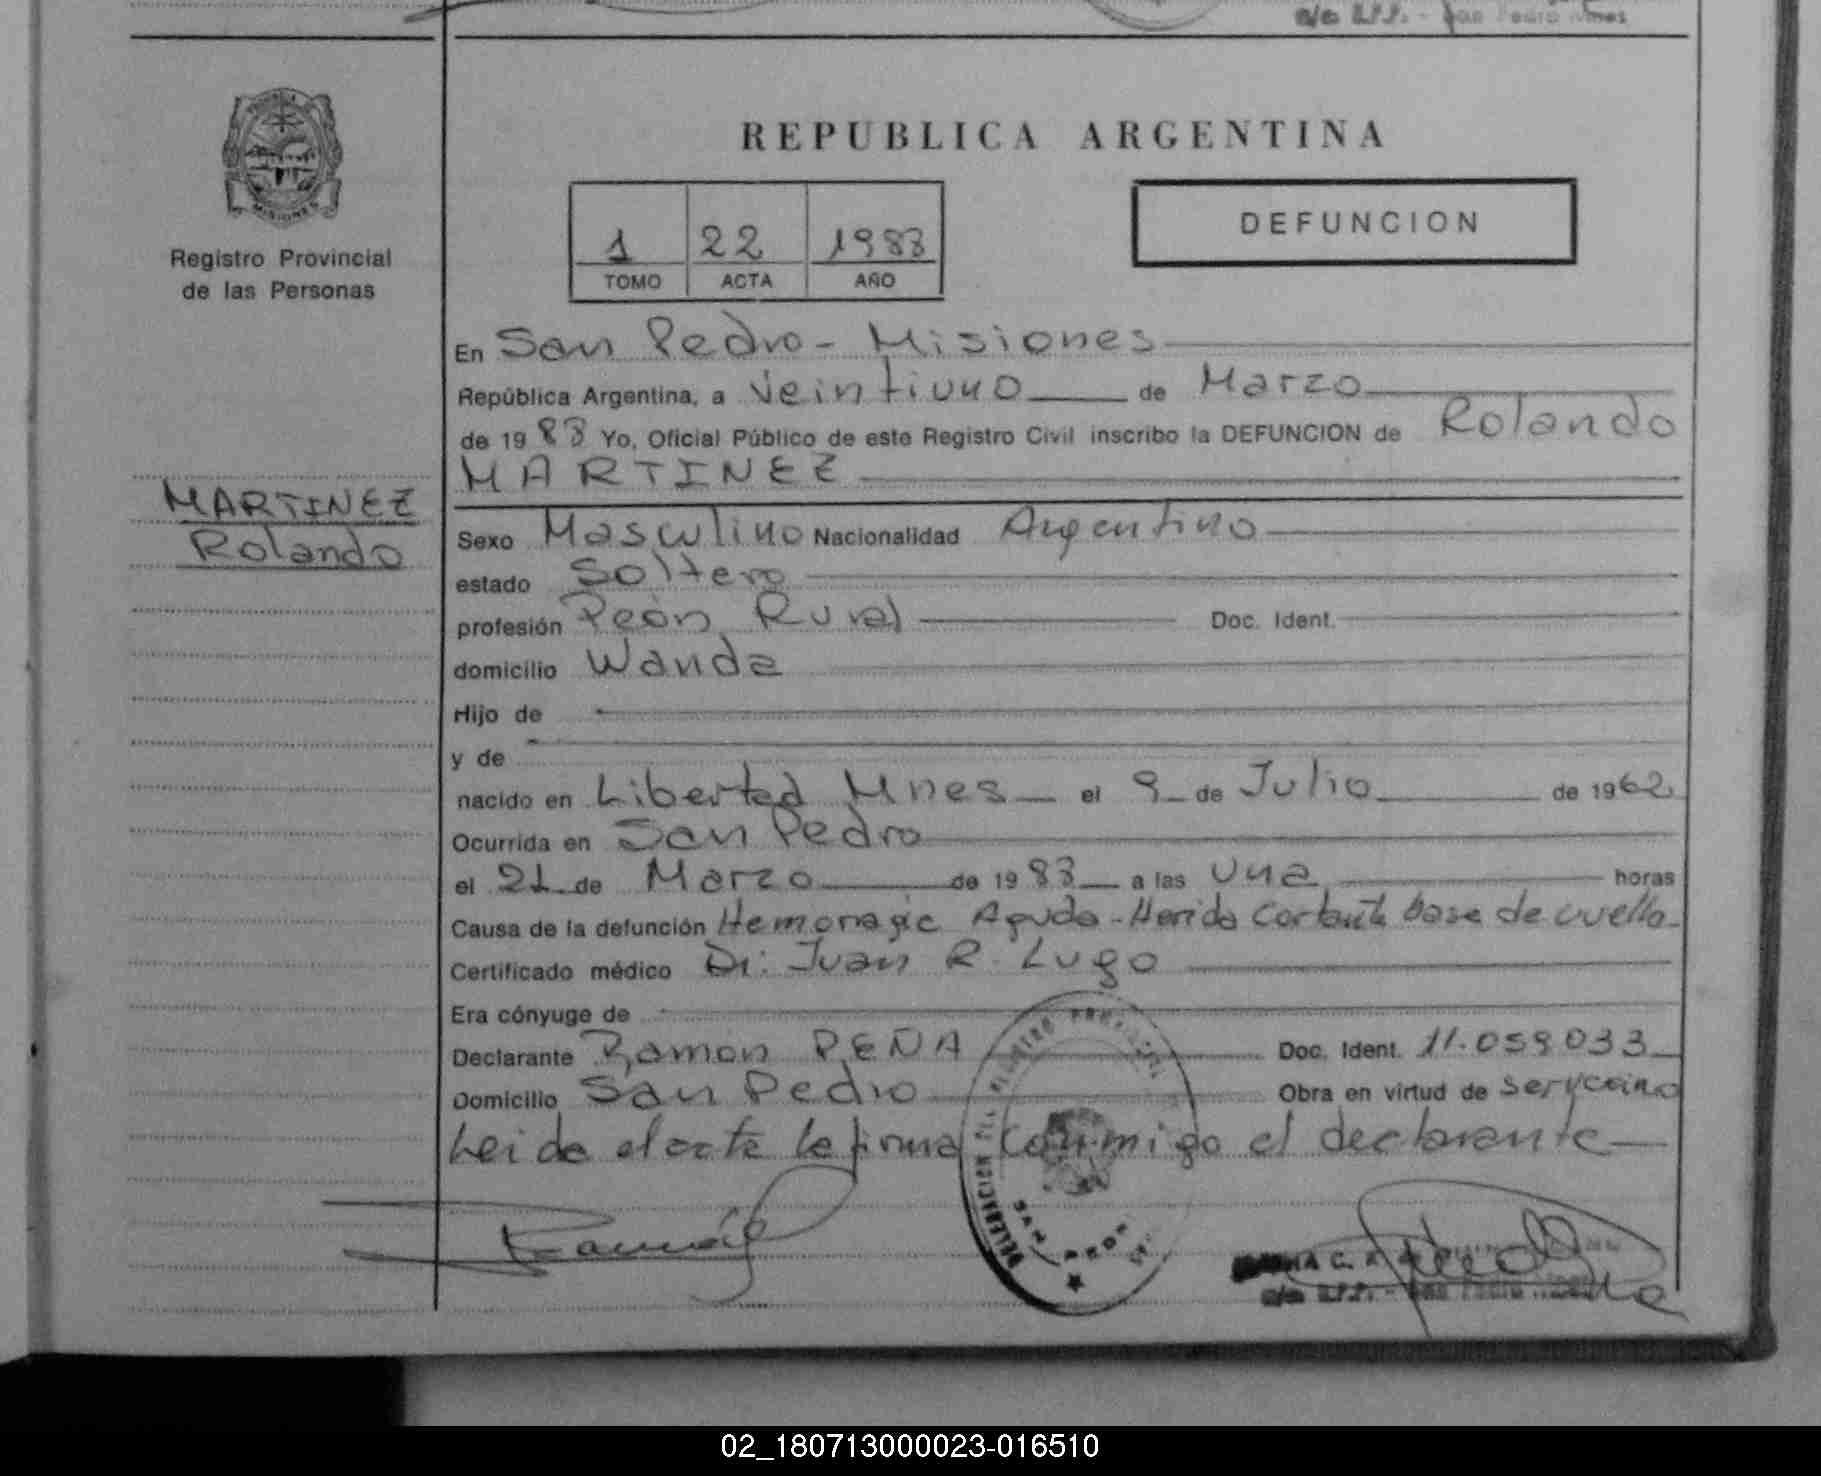 a/c R.P.P. - San Pedro Mnes
PROVINCIA
MISIONES
Registro Provincial
de las Personas
REPUBLICA ARGENTINA
1 22 1983
TOMO ACTA AÑO
DEFUNCION
En San Pedro - Misiones
República Argentina, a veintiuno de Marzo
de 1983 Yo, Oficial Público de este Registro Civil inscribo la DEFUNCION de Rolando
MARTINEZ
MARTINEZ
Rolando
Sexo Masculino Nacionalidad Argentino
estado Soltero
profesión Peón Rural Doc. Ident.
domicilio Wanda
Hijo de
y de
nacido en Libertad Mnes el 9 de Julio de 1962
Ocurrida en San Pedro
el 21 de Marzo de 1983 a las una horas
Causa de la defunción Hemoragie Aguda - Herida Cortante base de cuello
Certificado médico Dr: Juan R. Lugo
Era cónyuge de
Declarante Ramon PEÑA Doc. Ident. 11.059033
Domicilio San Pedro Obra en virtud de
Leida el acta la firma conmigo el declarante
DELEGACION DEL REGISTRO PROVINCIAL
SAN PEDRO
a/c R.P.P. - San Pedro
02_180713000023-016510